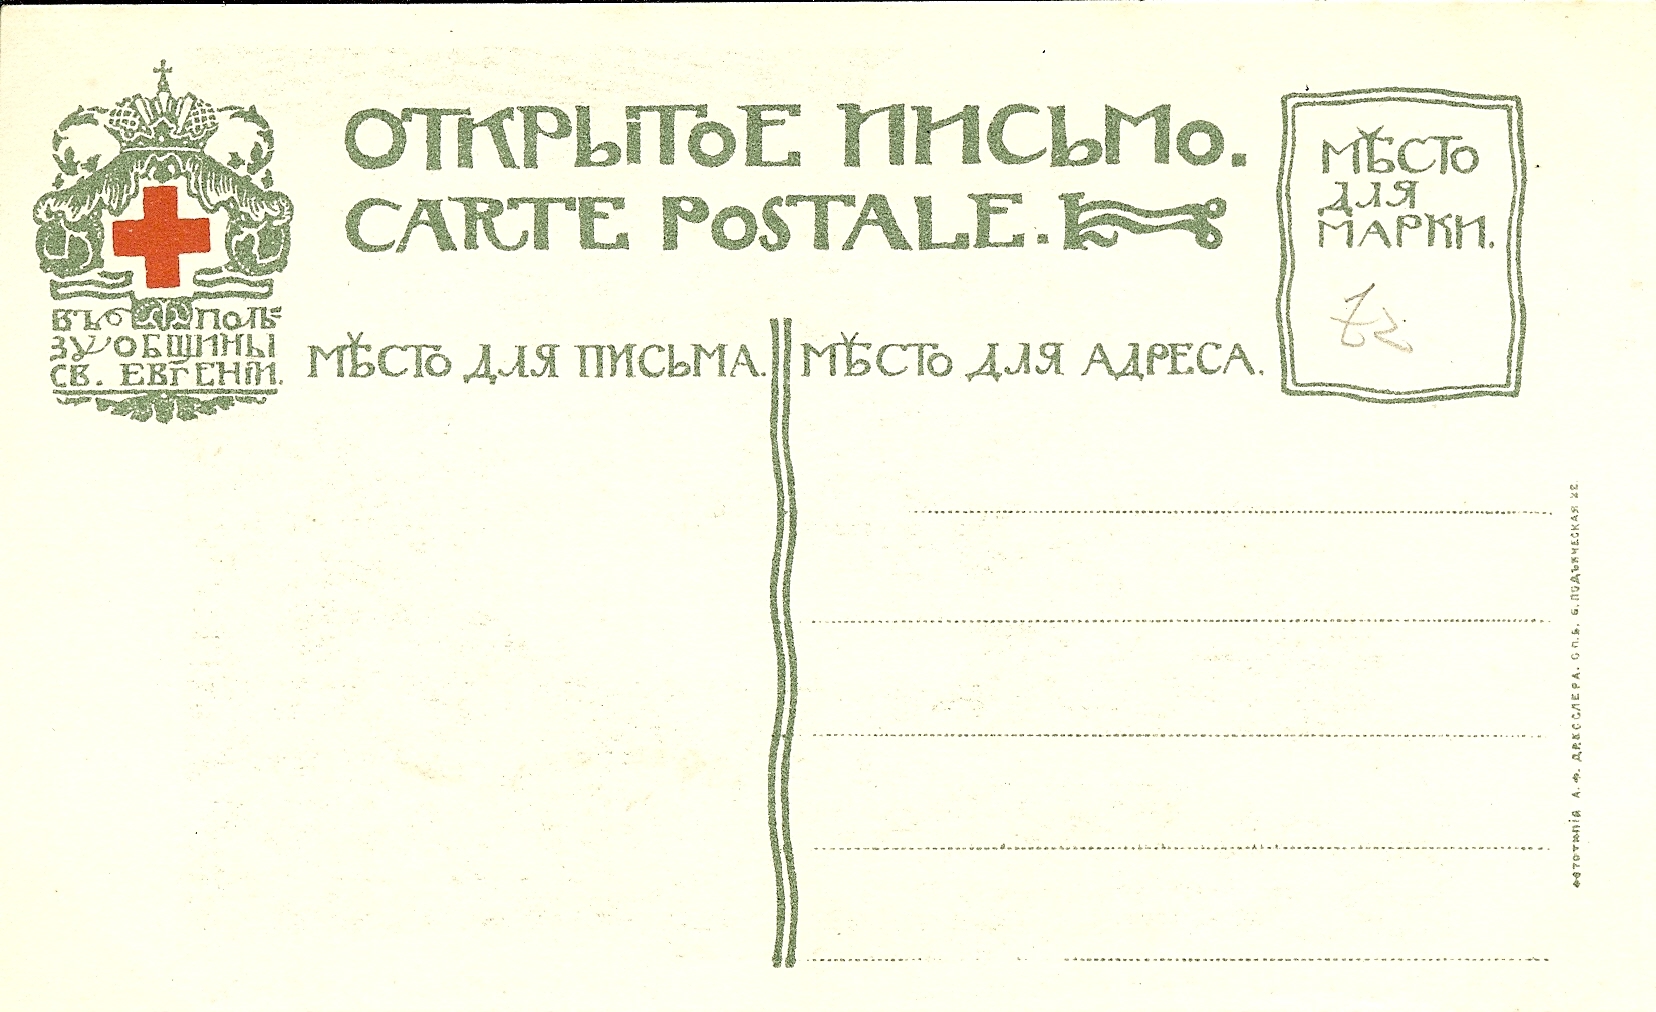 ОТКРЫТОЕ ПИСЬМО.
CARTE POSTALE.
МѢСТО
ДЛЯ
МАРКИ.
ВЪ ПОЛЬ=
ЗУ ОБЩИНЫ
СВ. ЕВГЕНІИ.
МѢСТО ДЛЯ ПИСЬМА.
МѢСТО ДЛЯ АДРЕСА.
ФОТОТИПІЯ А. Ф. ДРЕССЛЕРА. С.П.Б. Б. ПОДЪЯЧЕСКАЯ 22